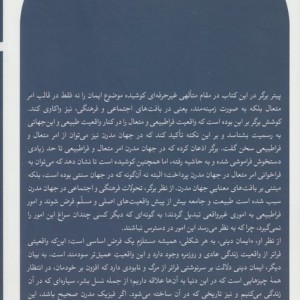 پیتر برگر در این کتاب در مقام متألهی غیرحرفه‌ای کوشیده موضوع ایمان را نه فقط در قالب امر
متعال بلکه به صورت زمینه‌مند، یعنی در بافت‌های اجتماعی و فرهنگی، نیز واکاوی کند.
کوشش برگر بر این بوده است که واقعیت فراطبیعی و متعال را در کنار واقعیت طبیعی و این‌جهانی
به رسمیت بشناسد و بر این نکته تأکید کند که در جهان مدرن نیز می‌توان از امر متعال و
فراطبیعی سخن گفت. برگر اذعان کرده که در جهان مدرن امر متعال و فراطبیعی تا حد زیادی
دستخوش فراموشی شده و به حاشیه رفته، اما همچنین کوشیده است تا نشان دهد که می‌توان به
فراخوانی امر متعال در جهان مدرن پرداخت؛ البته نه آن‌گونه که در جهان سنتی بوده است، بلکه
مبتنی بر بافت‌های معنایی جهان مدرن. از نظر برگر، تحولات فرهنگی و اجتماعی در جهان مدرن
سبب شده است طبیعت و جامعه بیش از پیش واقعیت‌های اصلی و مسلّم فرض شوند و امور
فراطبیعی به اموری غیرواقعی تبدیل گردند؛ به گونه‌ای که دیگر کسی چندان سراغ این امور را
نمی‌گیرد، چرا که به نظر می‌رسد این امور در دسترس نباشند.
از نظر او، «ایمان دینی، به هر شکلی، همیشه مستلزم یک فرض اساسی است: این‌که واقعیتی
فراتر از واقعیت زندگی عادی و روزمره وجود دارد و این واقعیتِ عمیق‌تر سودمند است. به بیان
دیگر، ایمان دینی دلالت بر سرنوشتی فراتر از مرگ و نابودی دارد که افزون بر خودمان، در انتظار
همهٔ چیزهایی است که در این دنیا به آن‌ها علاقه داریم؛ از جمله نسل بشر، سیاره‌ای که در آن
زندگی می‌کنیم و نیز تاریخی که در آن ساخته می‌شود. اگر فیزیک مدرن صحیح باشد، این